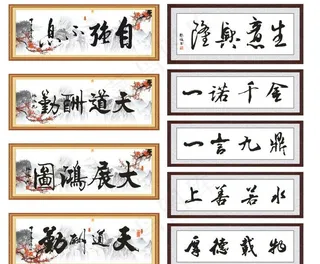 自強不息
天道酬勤
大展鴻圖
天道酬勤
生意興隆
一諾千金
一言九鼎
上善若水
厚德載物